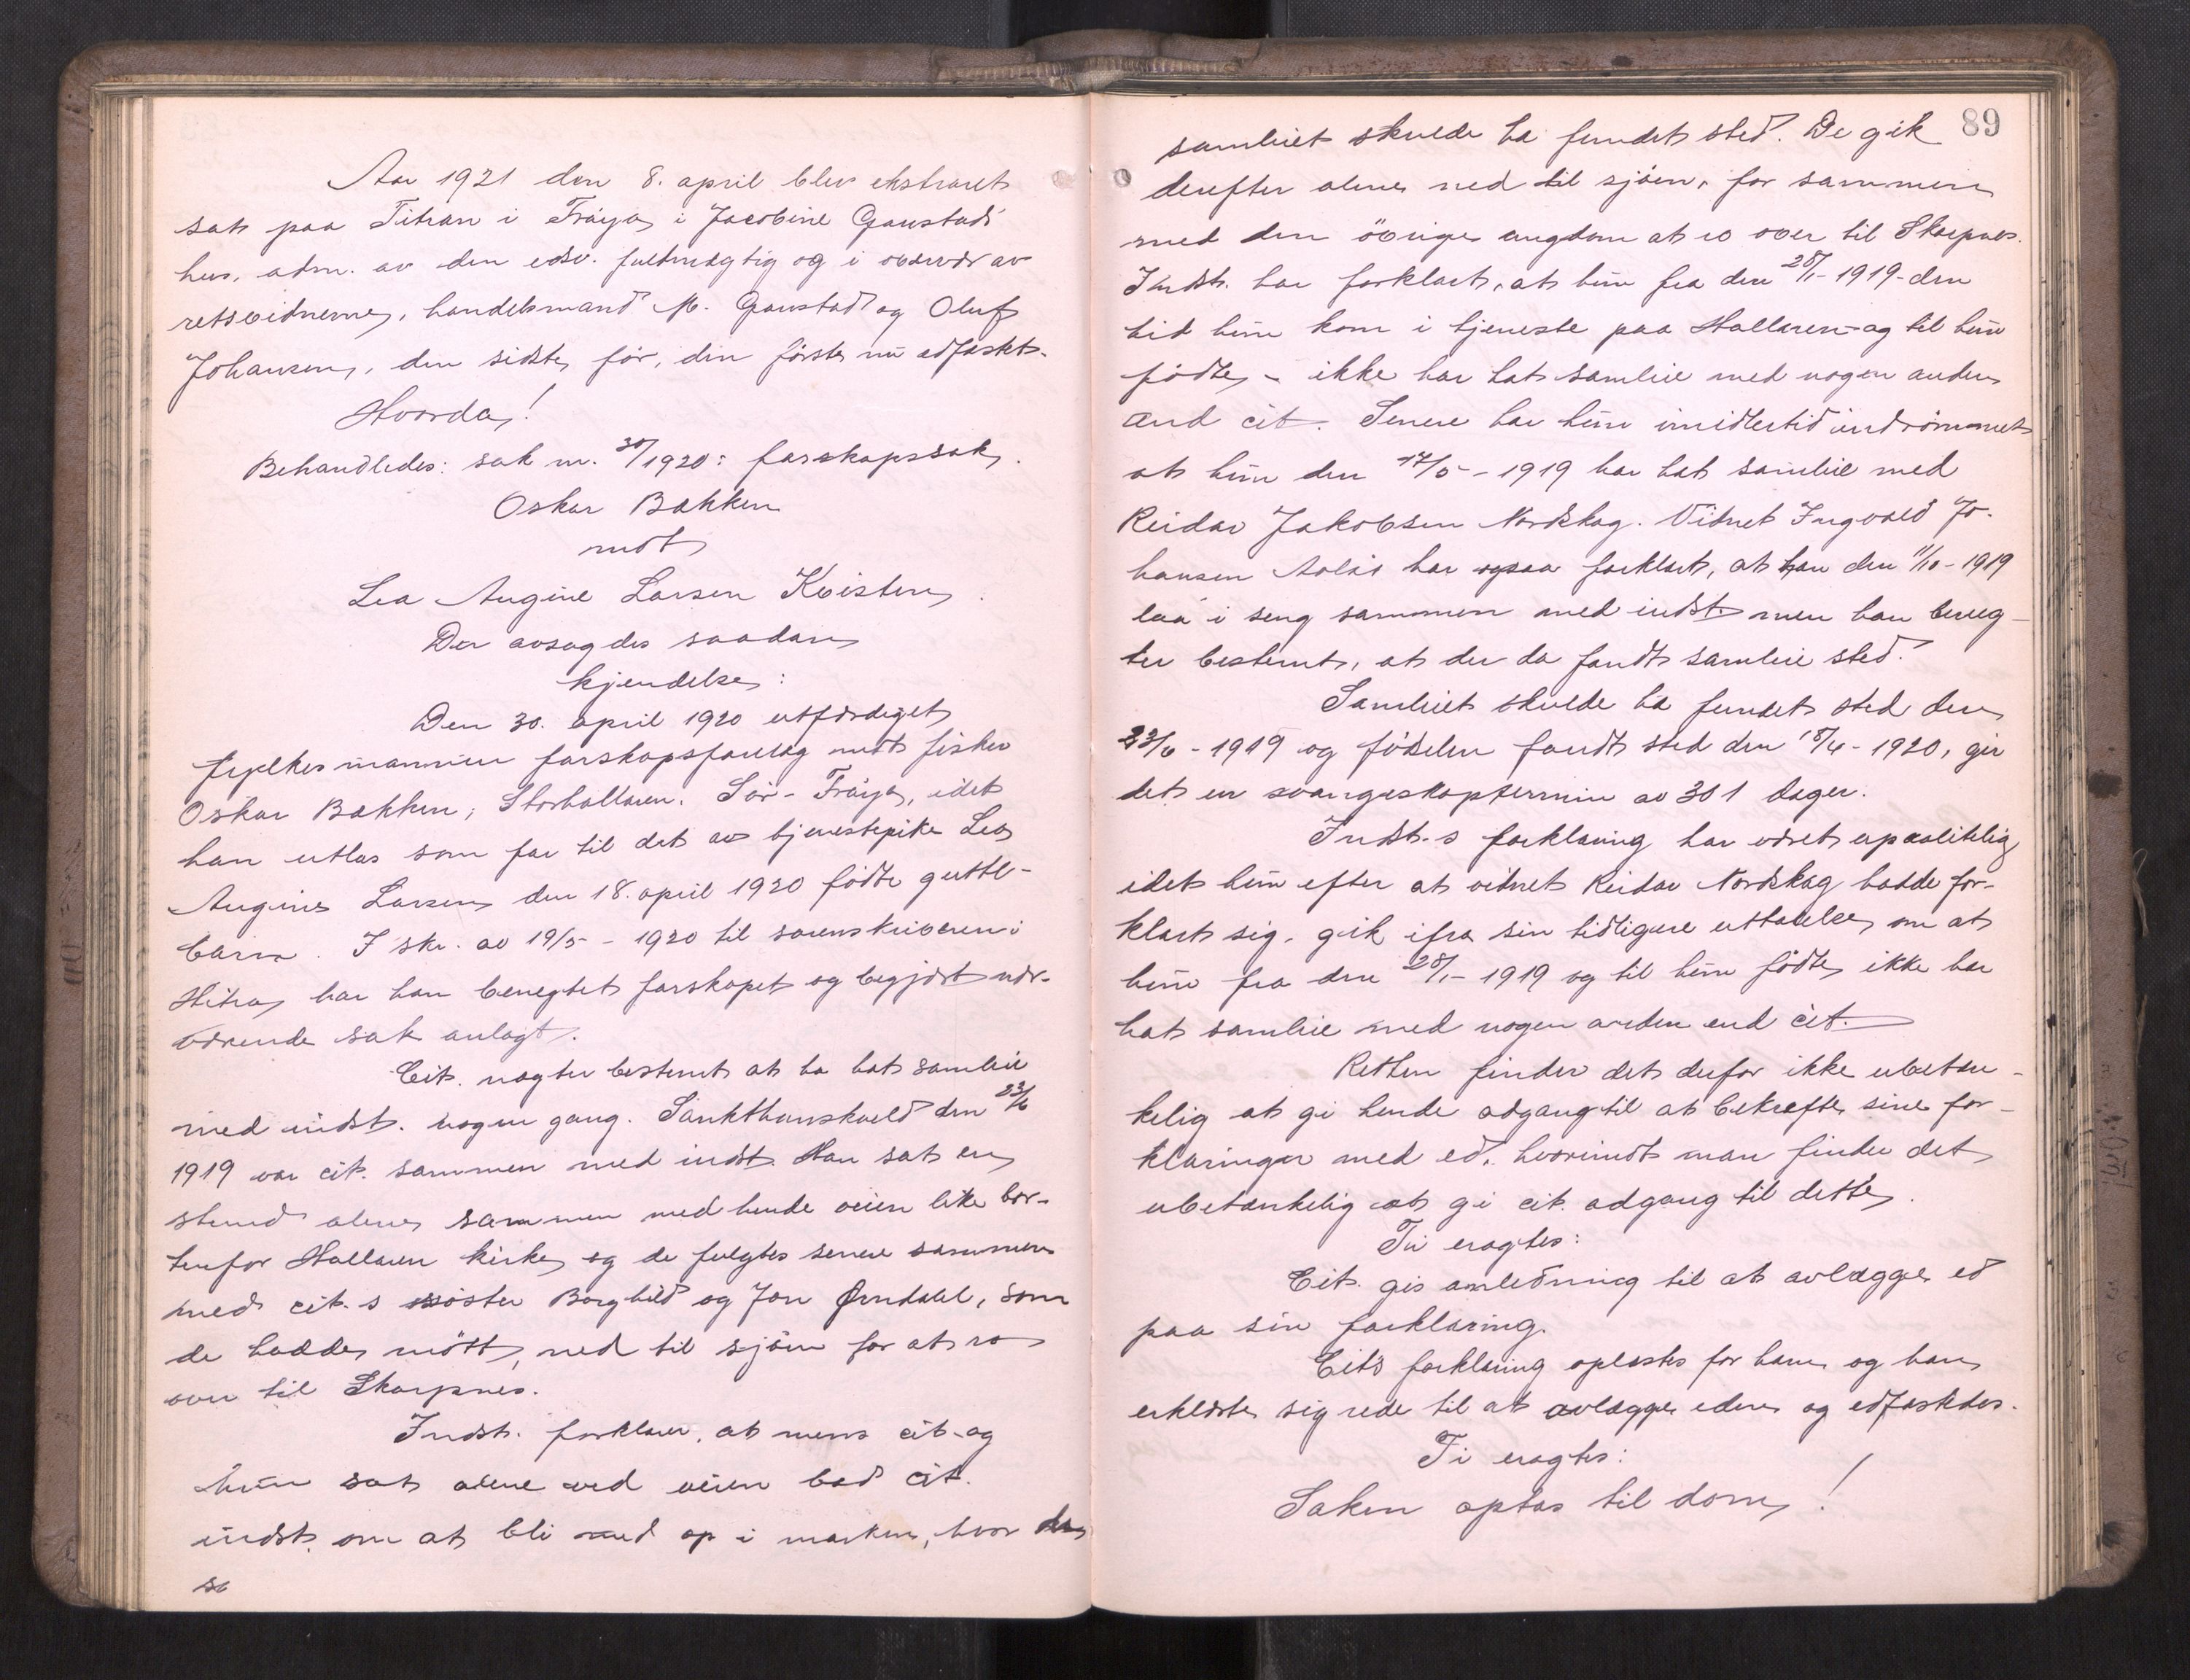 Aar 1921 den 8. april blev ekstraret
sat paa Titran i Fröya i Jacobine Gaustads
hus, adm. av den edsv. fuldmægtig og i overvær av
retsvidnerne, handelsmand M. Gaustad og Oluf
Johansen, den sidste før, den første nu edfæstet.
Hvorda!
Behandledes: sak nr. 30/1920: farskapssak.
Oskar Bakken
mot
Lea Augine Larsen Kvisten.
Der avsagdes saadan
kjendelse:
Den 30. april 1920 utfærdiget
fylkesmannen farskapsforelæg mot fisker
Oskar Bakken, Storhallaren, Sör-Fröya, idet
han utlas som far til det av tjenestepike Lea
Augine Larsen den 18. april 1920 fødte gutte-
barn. I skr. av 19/5-1920 til sorenskriveren i
Hitra har han benegtet farskapet og begjært nær-
værende sak anlagt.
Cit. nægter bestemt at ha hat samleie
med indst. nogen gang. Sankthanskveld den 23/6
1919 var cit. sammen med indst. Han sat en
stund alene sammen med hende veien like bor-
tenfor Hallaren kirke og de fulgtes senere sammen
med cit.s søster Borghild og Jon Ørndahl, som
de hadde mött, ned til sjöen for at ro
over til Skarpnes.
Indst. forklarer, at mens cit. og
hun sat alene ved veien bad cit.
indst. om at bli med op i marken, hvor
sa
89
samleiet skulde ha fundet sted. De gik
derefter alene ned til sjöen, for sammen
med den övrige ungdom at ro over til Skarpnes.
Indst. har forklart, at hun fra den 28/1-1919 - den
tid hun kom i tjeneste paa Hallaren - og til hun
födte, - ikke har hat samleie med nogen anden
end cit. Senere har hun imidlertid indrömmet
at hun den 17/5-1919 har hat samleie med
Reidar Jakobsen Nordskag. Vidnet Ingvald Jo-
hansen har ogsaa forklart, at han den 11/10-1919
laa i seng sammen med indst. men han beneg-
ter bestemt, at der da fandt samleie sted.
Samleiet skulde ha fundet sted den
23/6-1919 og födselen fandt sted den 18/4-1920, gir
det en svangerskaptermin av 301 dager.
Indst.s forklaring har været upaalitelig
idet hun efter at vidnet Reidar Nordskag hadde for-
klart sig, gik ifra sin tidligere uttalelse om at
hun fra den 28/1-1919 og til hun födte ikke har
hat samleie med nogen anden end cit.
Retten finder det derfor ikke ubetæn-
kelig at gi hende adgang til at bekræfte sine for-
klaringer med ed, hvorimot man finder det
ubetænkelig at gi cit. adgang til dette.
Ti eragtes:
Cit. gis anledning til at avlægge ed
paa sin forklaring.
Cit's forklaring oplæstes for ham og han
erklærte sig rede til at avlægge eden og edfæstedes.
Ti eragtes:
Saken optas til dom!